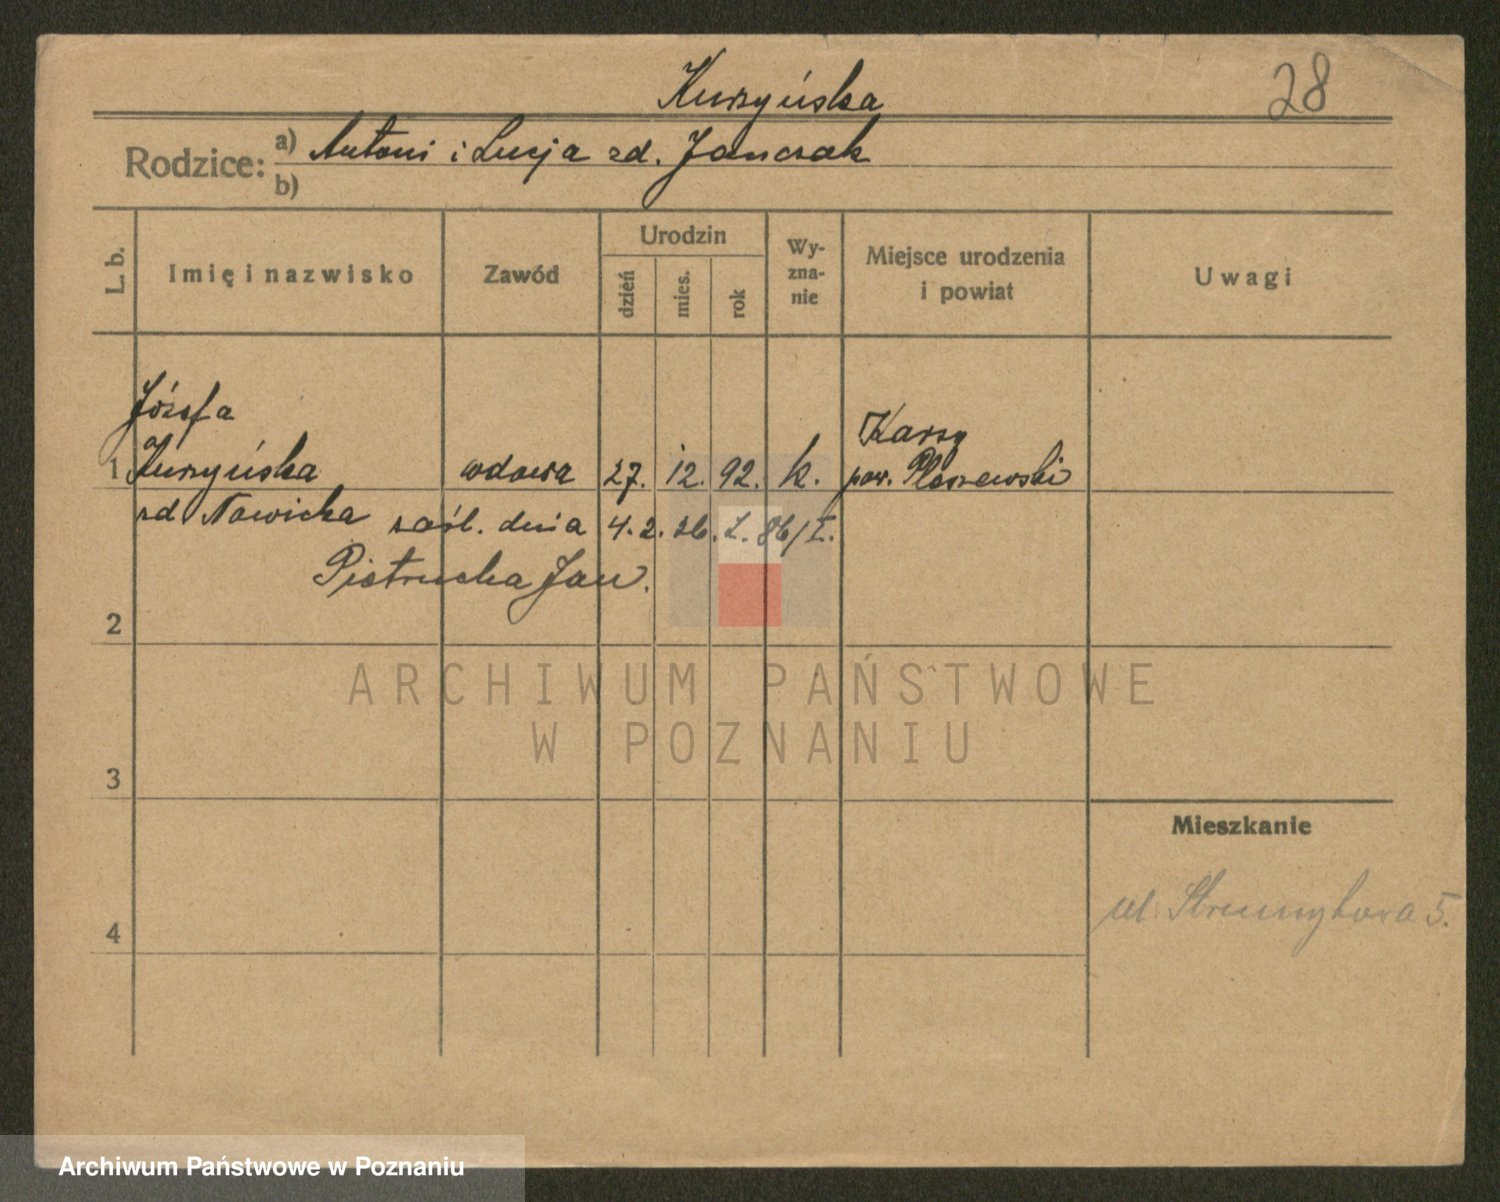 Kurzyńska
28
Rodzice: a) Antoni i Łucja zd. Janczak
b)
L. b.
Imię i nazwisko
Zawód
Urodzin
dzień
mies.
rok
Wy-
zna-
nie
Miejsce urodzenia
i powiat
Uwagi
Józefa
1 Kurzyńska wdowa 27. 12. 92. k. Karsy
pow. Pleszewski
zd Nowicka zaśl. dnia 4. 2. 26. L. 86/I.
Pietrucha Jan.
2
ARCHIWUM PAŃSTWOWE
W POZNANIU
3
Mieszkanie
ul. Strumykowa 5.
4
Archiwum Państwowe w Poznaniu